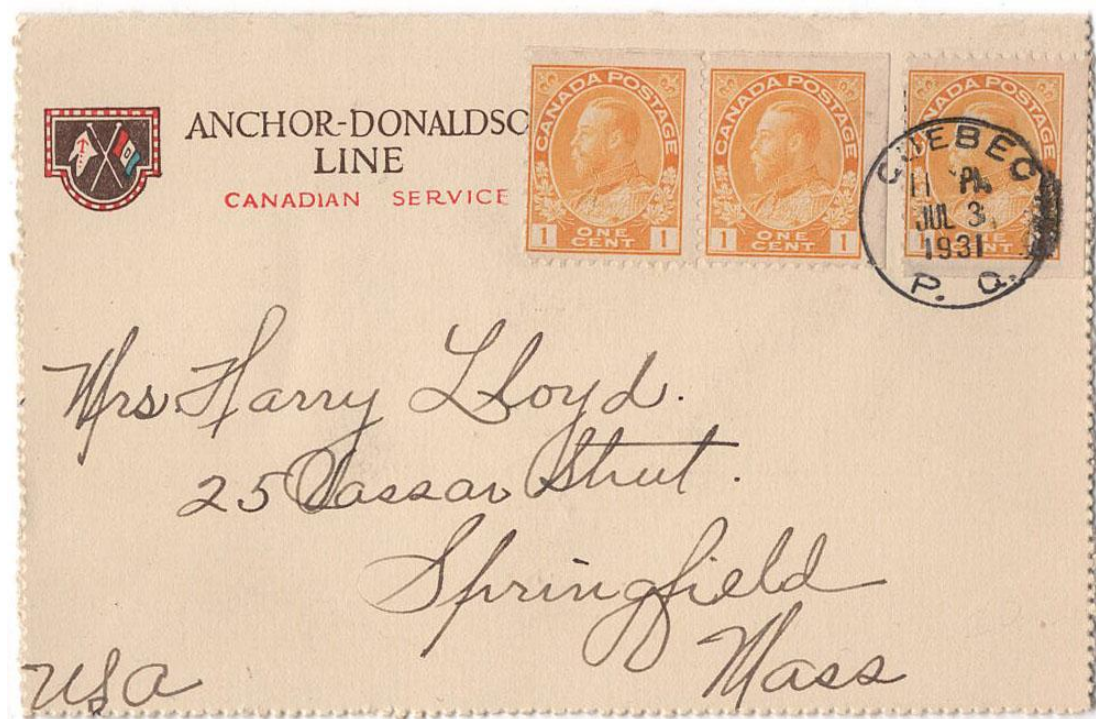 ANCHOR-DONALDSO
LINE
CANADIAN SERVICE
CANADA POSTAGE
1 ONE CENT 1
CANADA POSTAGE
1 ONE CENT 1
CANADA POSTAGE
1 CENT
QUEBEC
11 PM
JUL 3
1931
P. Q.
Mrs Harry Lloyd.
25 Vassar Street.
Springfield
Mass
USA